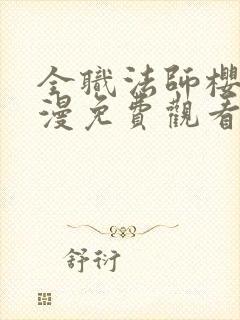 全職法師櫻
漫免費觀看
舒衍